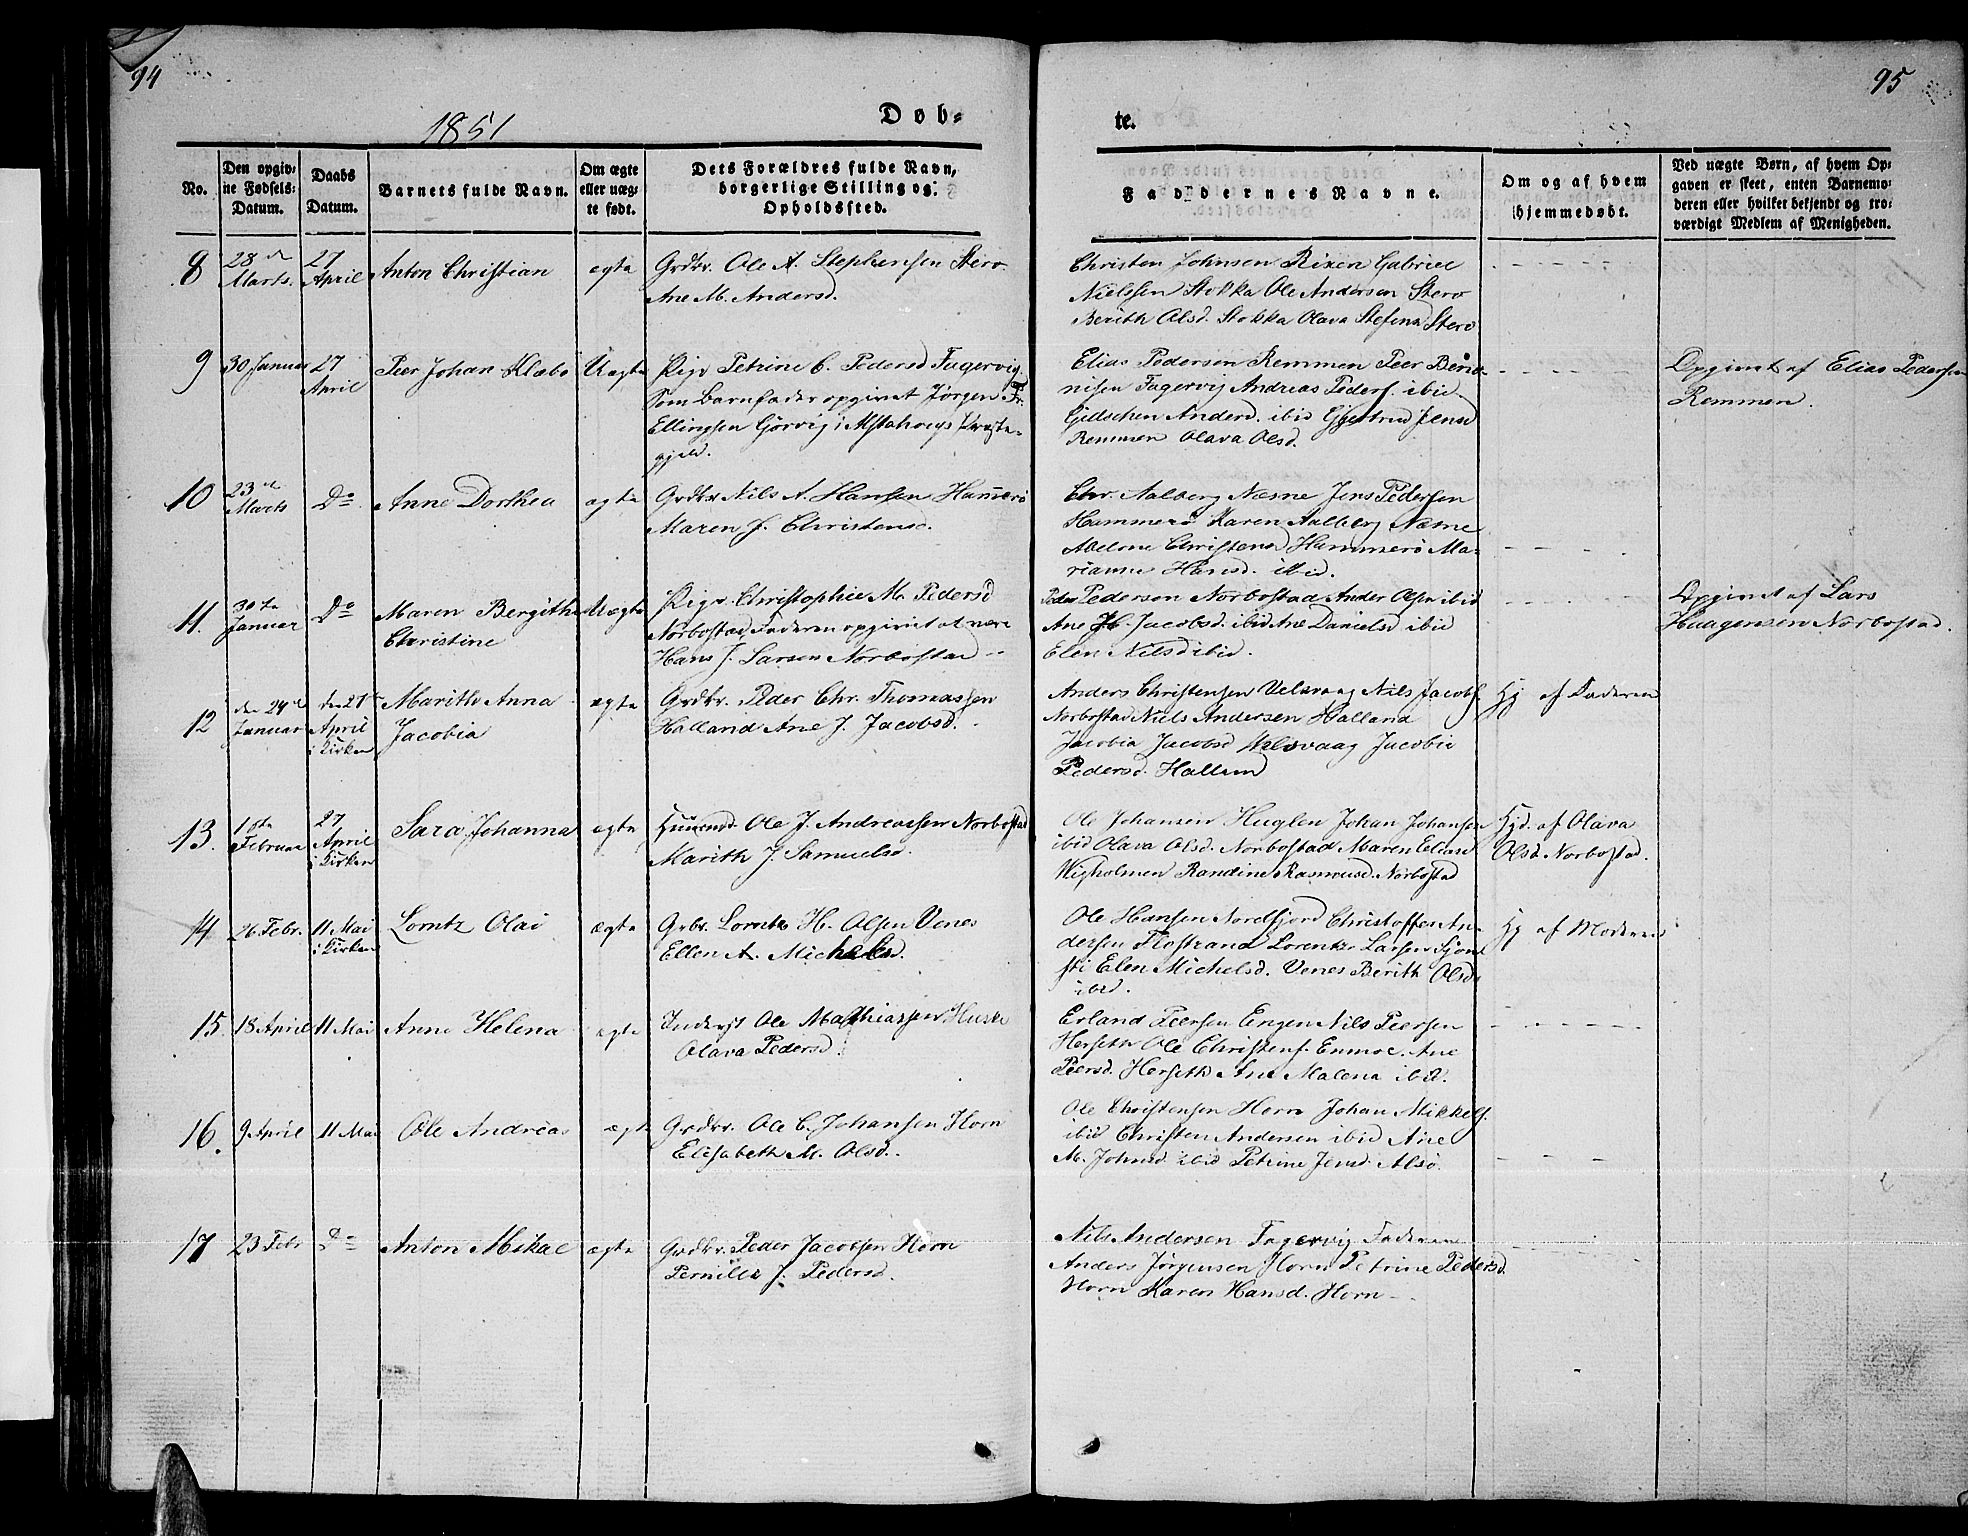 94
1851
Døb-
No.
Den opgiv-
ne Fødsels-
Datum.
Daabs
Datum.
Barnets fulde Navn.
Om ægte
eller uæg-
te født.
Dets Forældres fulde Navn,
borgerlige Stilling og
Opholdssted.
8
28de
Marts.
27
April
Anton Christian
ægte
Grdbr. Ole A. Stephensen Sterø
Ane M. Andersd.
9
30 Januar
27
April
Peer Johan Klæbo
Uægte
Pige Petrine C. Pedersd Fagervig
Som Barnfader opgivet Jørgen Fr.
Ellingsen Görvig i Alstahougs Præste-
gjeld.
10
23de
Marts
Do
Anne Dorthea
ægte
Grdbr Nils A. Hansen Hammerö
Maren J. Christensd.
11.
30te
Januar
Do
Maren Bergithe
Christine
Uægte
Pige Christophie M. Pedersd
Norbostad Faderen opgivet at være
Hans J. Larsen Norbostad
12
den 24de
Januar
den 27
April
i Kirken
Marith Anna
Jacobia
ægte
Grdbr. Peder Chr. Thomassen
Halland Ane J. Jacobsd.
13.
1ste
Februar
27
April
i Kirken
Sara Johanna
ægte
Huusmd. Ole J. Andreassen Norbostad
Marith J. Samuelsd.
14
26 Febr.
11 Mai
i Kirken
Lorntz Olai
ægte
Grbr. Lorntz H. Olsen Venes
Ellen A. Michelsd.
15.
18 April
11 Mai
Anne Helena
ægte
Inderst Ole Mathiassen
Olava Pedersd.
16.
9 April
11 Mai
Ole Andreas
ægte
Grdbr. Ole C. Johansen Horn
Elisabeth M. Olsd.
17
23 Febr
Do
Anton Mikal
ægte
Grdbr. Peder Jacobsen Horn
Pernille J. Pedersd.
95
te.
Faddernes Navne.
Om og af hvem
hjemmedøbt.
Ved uægte Børn, af hvem Op-
gaven er skeet, enten Barnemo-
deren eller hvilket bekjendt og tro-
værdigt Medlem af Menigheden.
Christen Johnsen Rixen Gabriel
Nielssen Stokka Ole Andersen Sterø
Berith Olsd. Stokka Olava Stefensd Sterø
Elias Pedersen Remmen Peer
Fagervig Andreas Peders. ibid
Andersd. ibid Gjertrud Jensd
Remmen Olava Olsd.
Opgivet af Elias Pedersen
Remmen.
Chr. Aalberg Næsne Jens Pedersen
Hammerö Karen Aalberg Næsne
Abelone Christensd Hammerö Ma-
rianne Hansd. ibid.
Peder Pedersen Norbostad Ander Olsen ibid
Ane H. Jacobsd. ibid Ane Danielsd ibid
Elen Nilsd ibid.
Opgivet af Lars
Haagensen Norbostad.
Anders Christensen Velsvaag Nils Jacobs.
Norbostad Niels Andersen Halland
Jacobia Jacobsd Velsvaag Jacobie
Pedersd. Halland
Hj af Faderen
Ole Johansen Huglen Johan Johansen
ibid Olava Olsd. Norbostad Maren Eliasd
Wigholmen Randine Rasmusd. Norbostad
Hjd. af Olava
Olsd. Norbostad.
Ole Hansen Nordfjord Christoffer An-
dersen Flostrand Lorentz Larsen
Elen Michelsd. Venes Berith Olsd.
ibid.
Hj af Moderen
Erland Peersen Engen Nils Peersen
Herseth Ole Christens. Enmoe. Ane
Peersd. Herseth Ane Malena ibid.
Ole Christensen Horn Johan Mikkels.
ibid Christen Andersen ibid Ane
M. Johnsd ibid Petrine Jensd Alsö.
Nils Andersen Fagervig Faderen
Anders Jörgensen Horn Petrine Pedersd.
Horn Karen Hansd. Horn